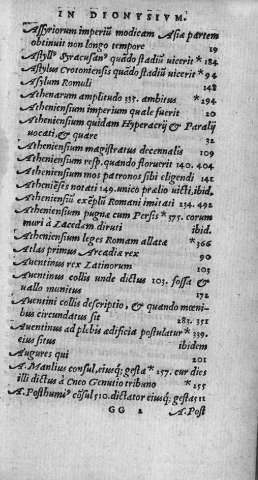 IN DIONYSIVM.
Assyriorum imperiũ modicam Asiæ partem
obtinuit non longo tempore 19
Astyll° Syracusan° quãdo stadiũ uicerit * 184
Astylus Crotoniensis quãdo stadiũ uicerit * 94
Asylum Romuli 148
Athenarum amplitudo 335. ambitus * 294
Atheniensium imperium quale fuerit 20
Atheniensium quidam Hyperacrij & Paralij
uocati, & quare 32
Atheniensium magistratus decennalis 109
Atheniensium resp. quando floruerit 140. 404
Atheniensium mos patronos sibi eligendi 142
Atheniẽses notati 149. unico prælio uicti, ibid.
Atheniensiũ exẽplũ Romani imitati 234. 492
Atheniensium pugnæ cum Persis * 375. eorum
muri à Lacedæm diruti ibid.
Atheniensium leges Romam allatæ * 366
Atlas primus Arcadiæ rex 90
Auentinus rex Latinorum 103
Auentinus collis unde dictus 103. fossa &
uallo munitus 172
Auentini collis descriptio, & quando mœni-
bus circundatus sit 283. 351
Auentinus ad plebis ædificia postulatur * 339.
eius situs ibidem
Augures qui 201
A. Manlius consul, eiusq; gesta * 257. cur dies
illi dictus à Cneo Genutio tribuno * 255
A. Posthumi° cõsul 510. dictator eiusq; gesta 512
GG 2 A. Post